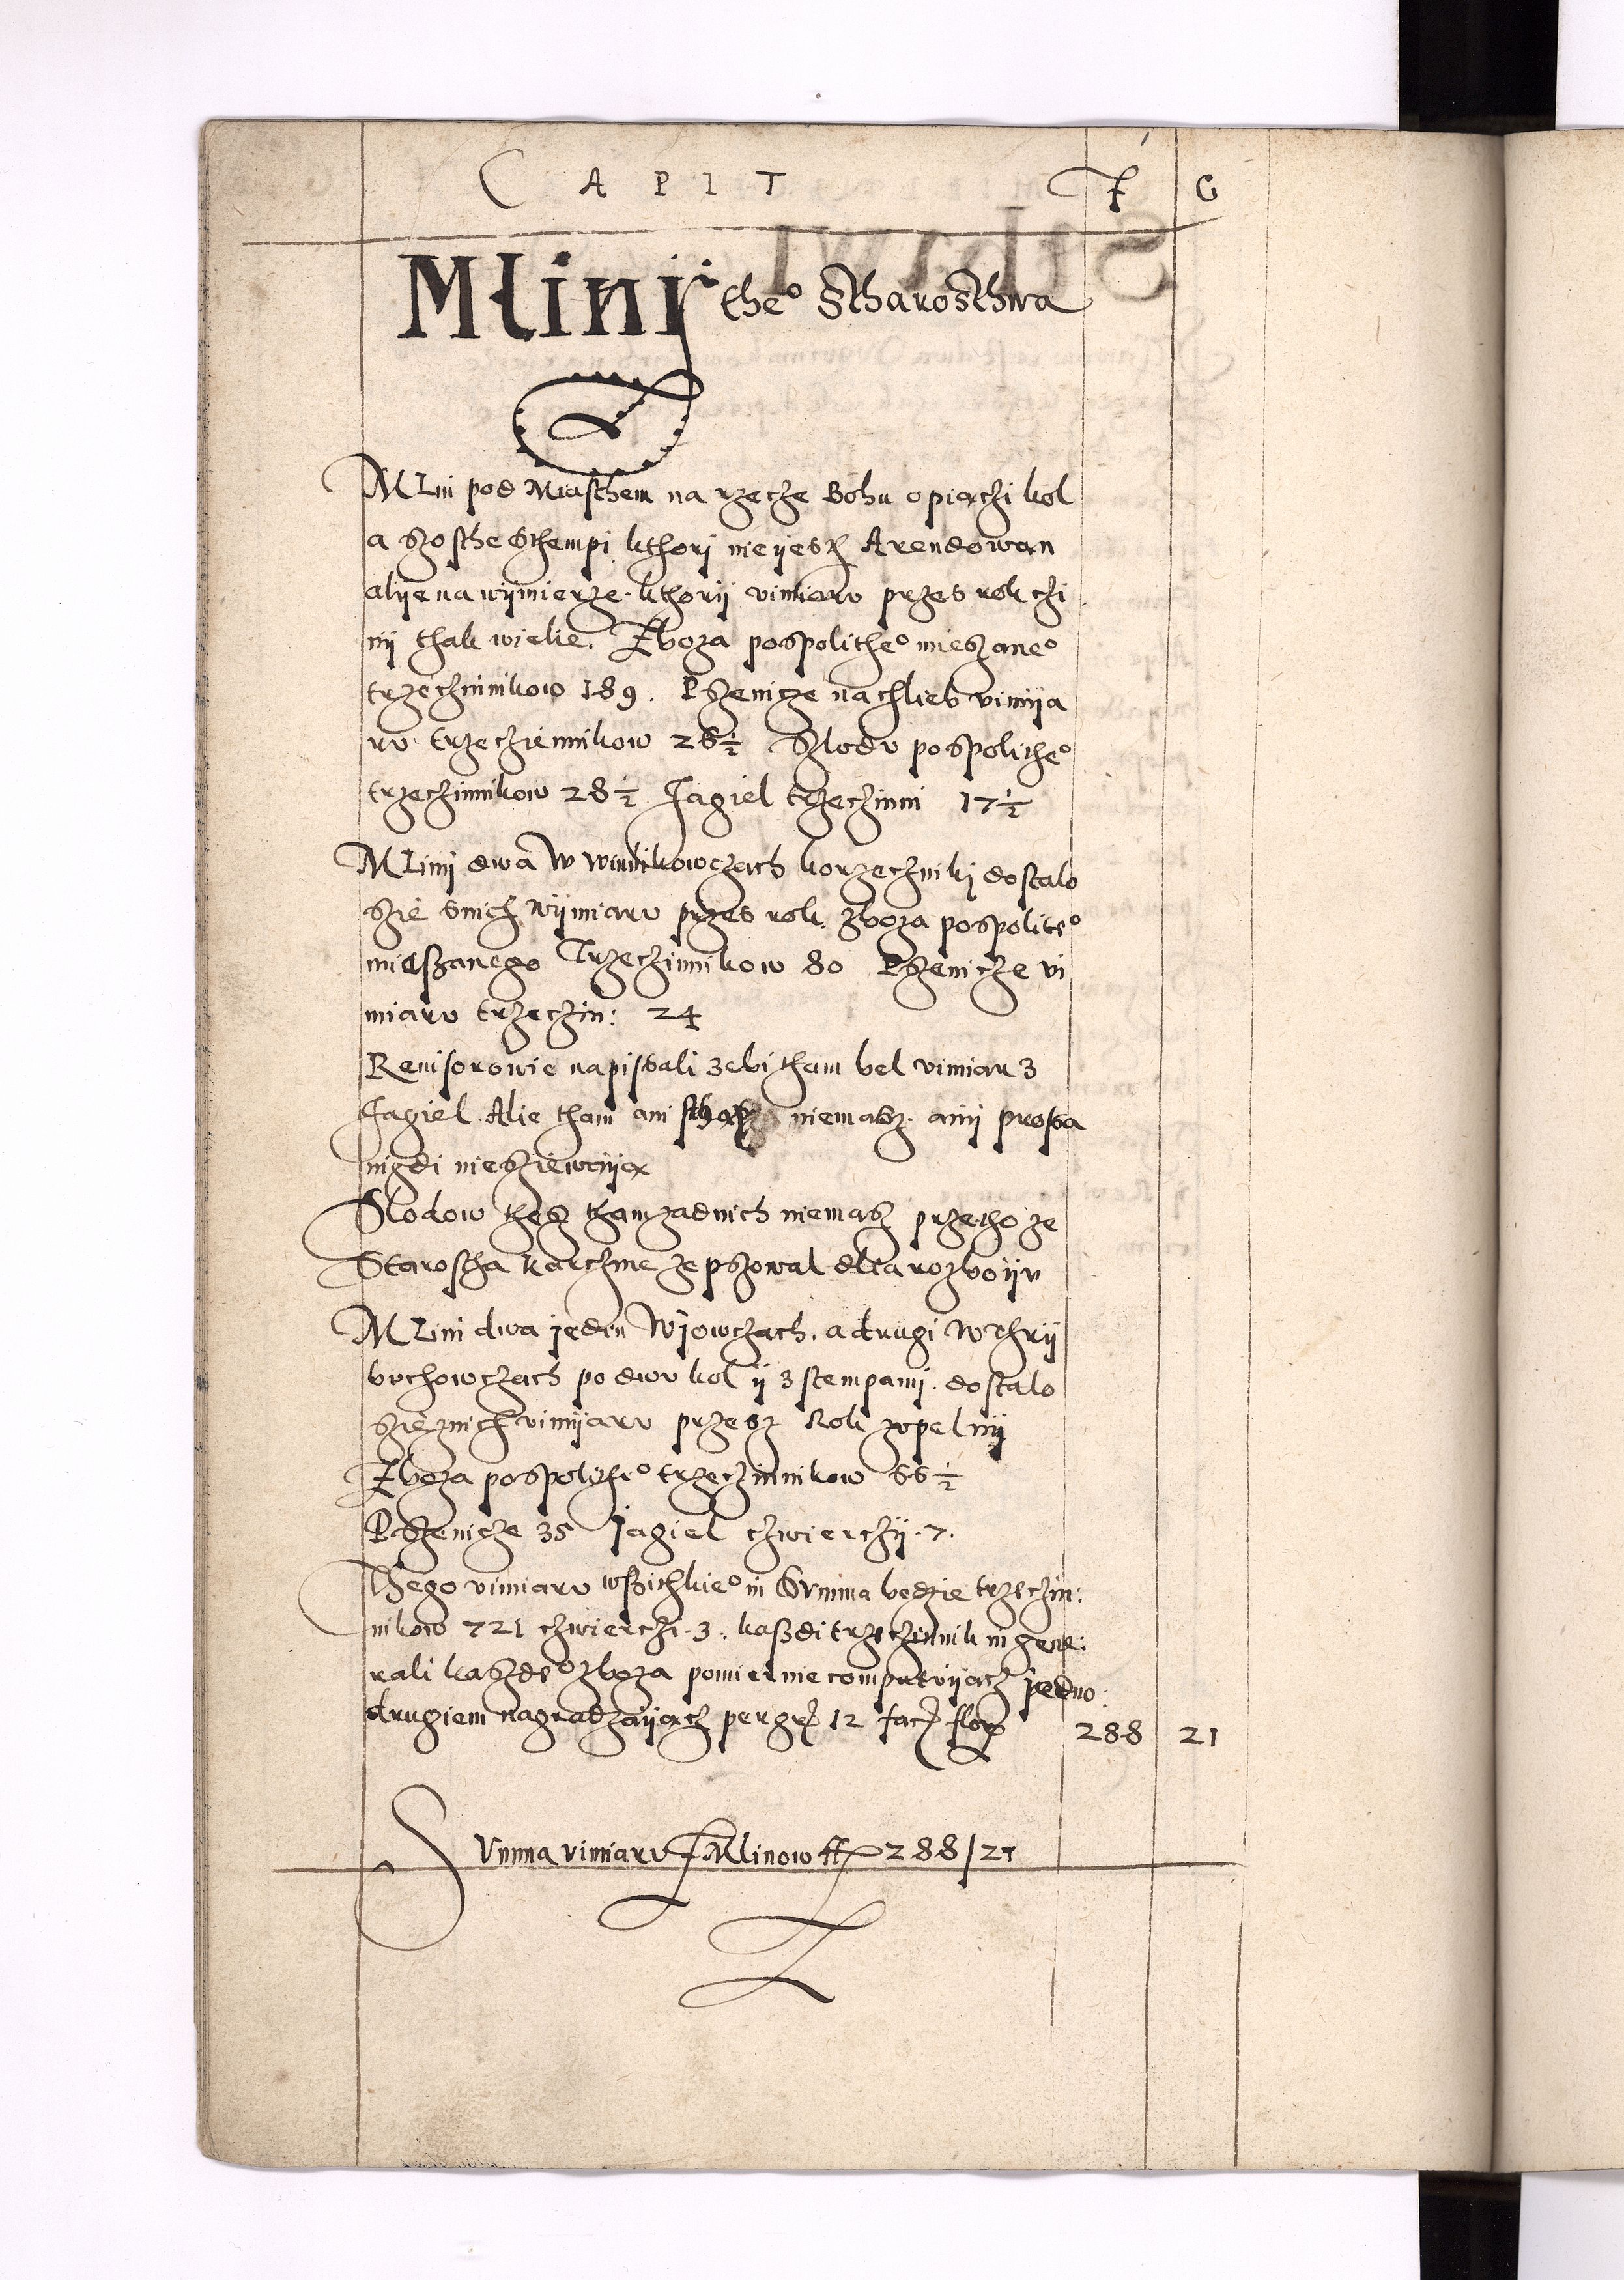 CAPIT F G
Mlinij the° Stharosthwa
Mlin pod Miasthem na rzecze Bohu o piączi kol
a szosthe Sthempi kthorj nie jesth Arendowan
alije na wijmierze. kthorij vimiaru przes rok czi
nij thak wielie. Zboza pospolithe° mieszane°
trzeczinnikow 189. Pszenicze na chlieb vimija
ru trzeczienników 26½ Slodu pospolithe°
trzeczinnikow 28½ Jagiel trzeczinni 17½
Mlinij dwa w winnikowczach korzecznikj dostalo
szie snich wijmiaru przes rok zboza pospolite°
mieszanego Trzeczinnikow 80 Pszenicze vi
miaru trzeczin: 24
Reuisorowie napissali zebi tham bel vimiar z
Jagiel. Alie tham ani niemasz. anij prossa
nigdi nie sziewaiją
Slodow thesz tham zadnich niemasz przetho ze
Starostha karczme zepszowal dlia rozboiju
Mlini dwa jeden w Jowczach, a drugi w Thrij
buchowczach po dwu kol ij z stempami. dostalo
szie z nich vimijaru przesz Rok zupelnij
Zboza pospolithe° trzeczinnikow 66½
Pszenicze 35 Jagiel czwierczij. 7.
Thego vimiaru wszithkie° in Summa bedzie trzeczin:
nikow 721 czwierczi. 3. kaszdi trzeczinnik in gene:
rali kaszde° zboza pomiernie computuijącz jedno:
drugiem nagradzaijacz per gr 12 facit flor 288 21
Summa vimiaru z Mlinow ff 288/21